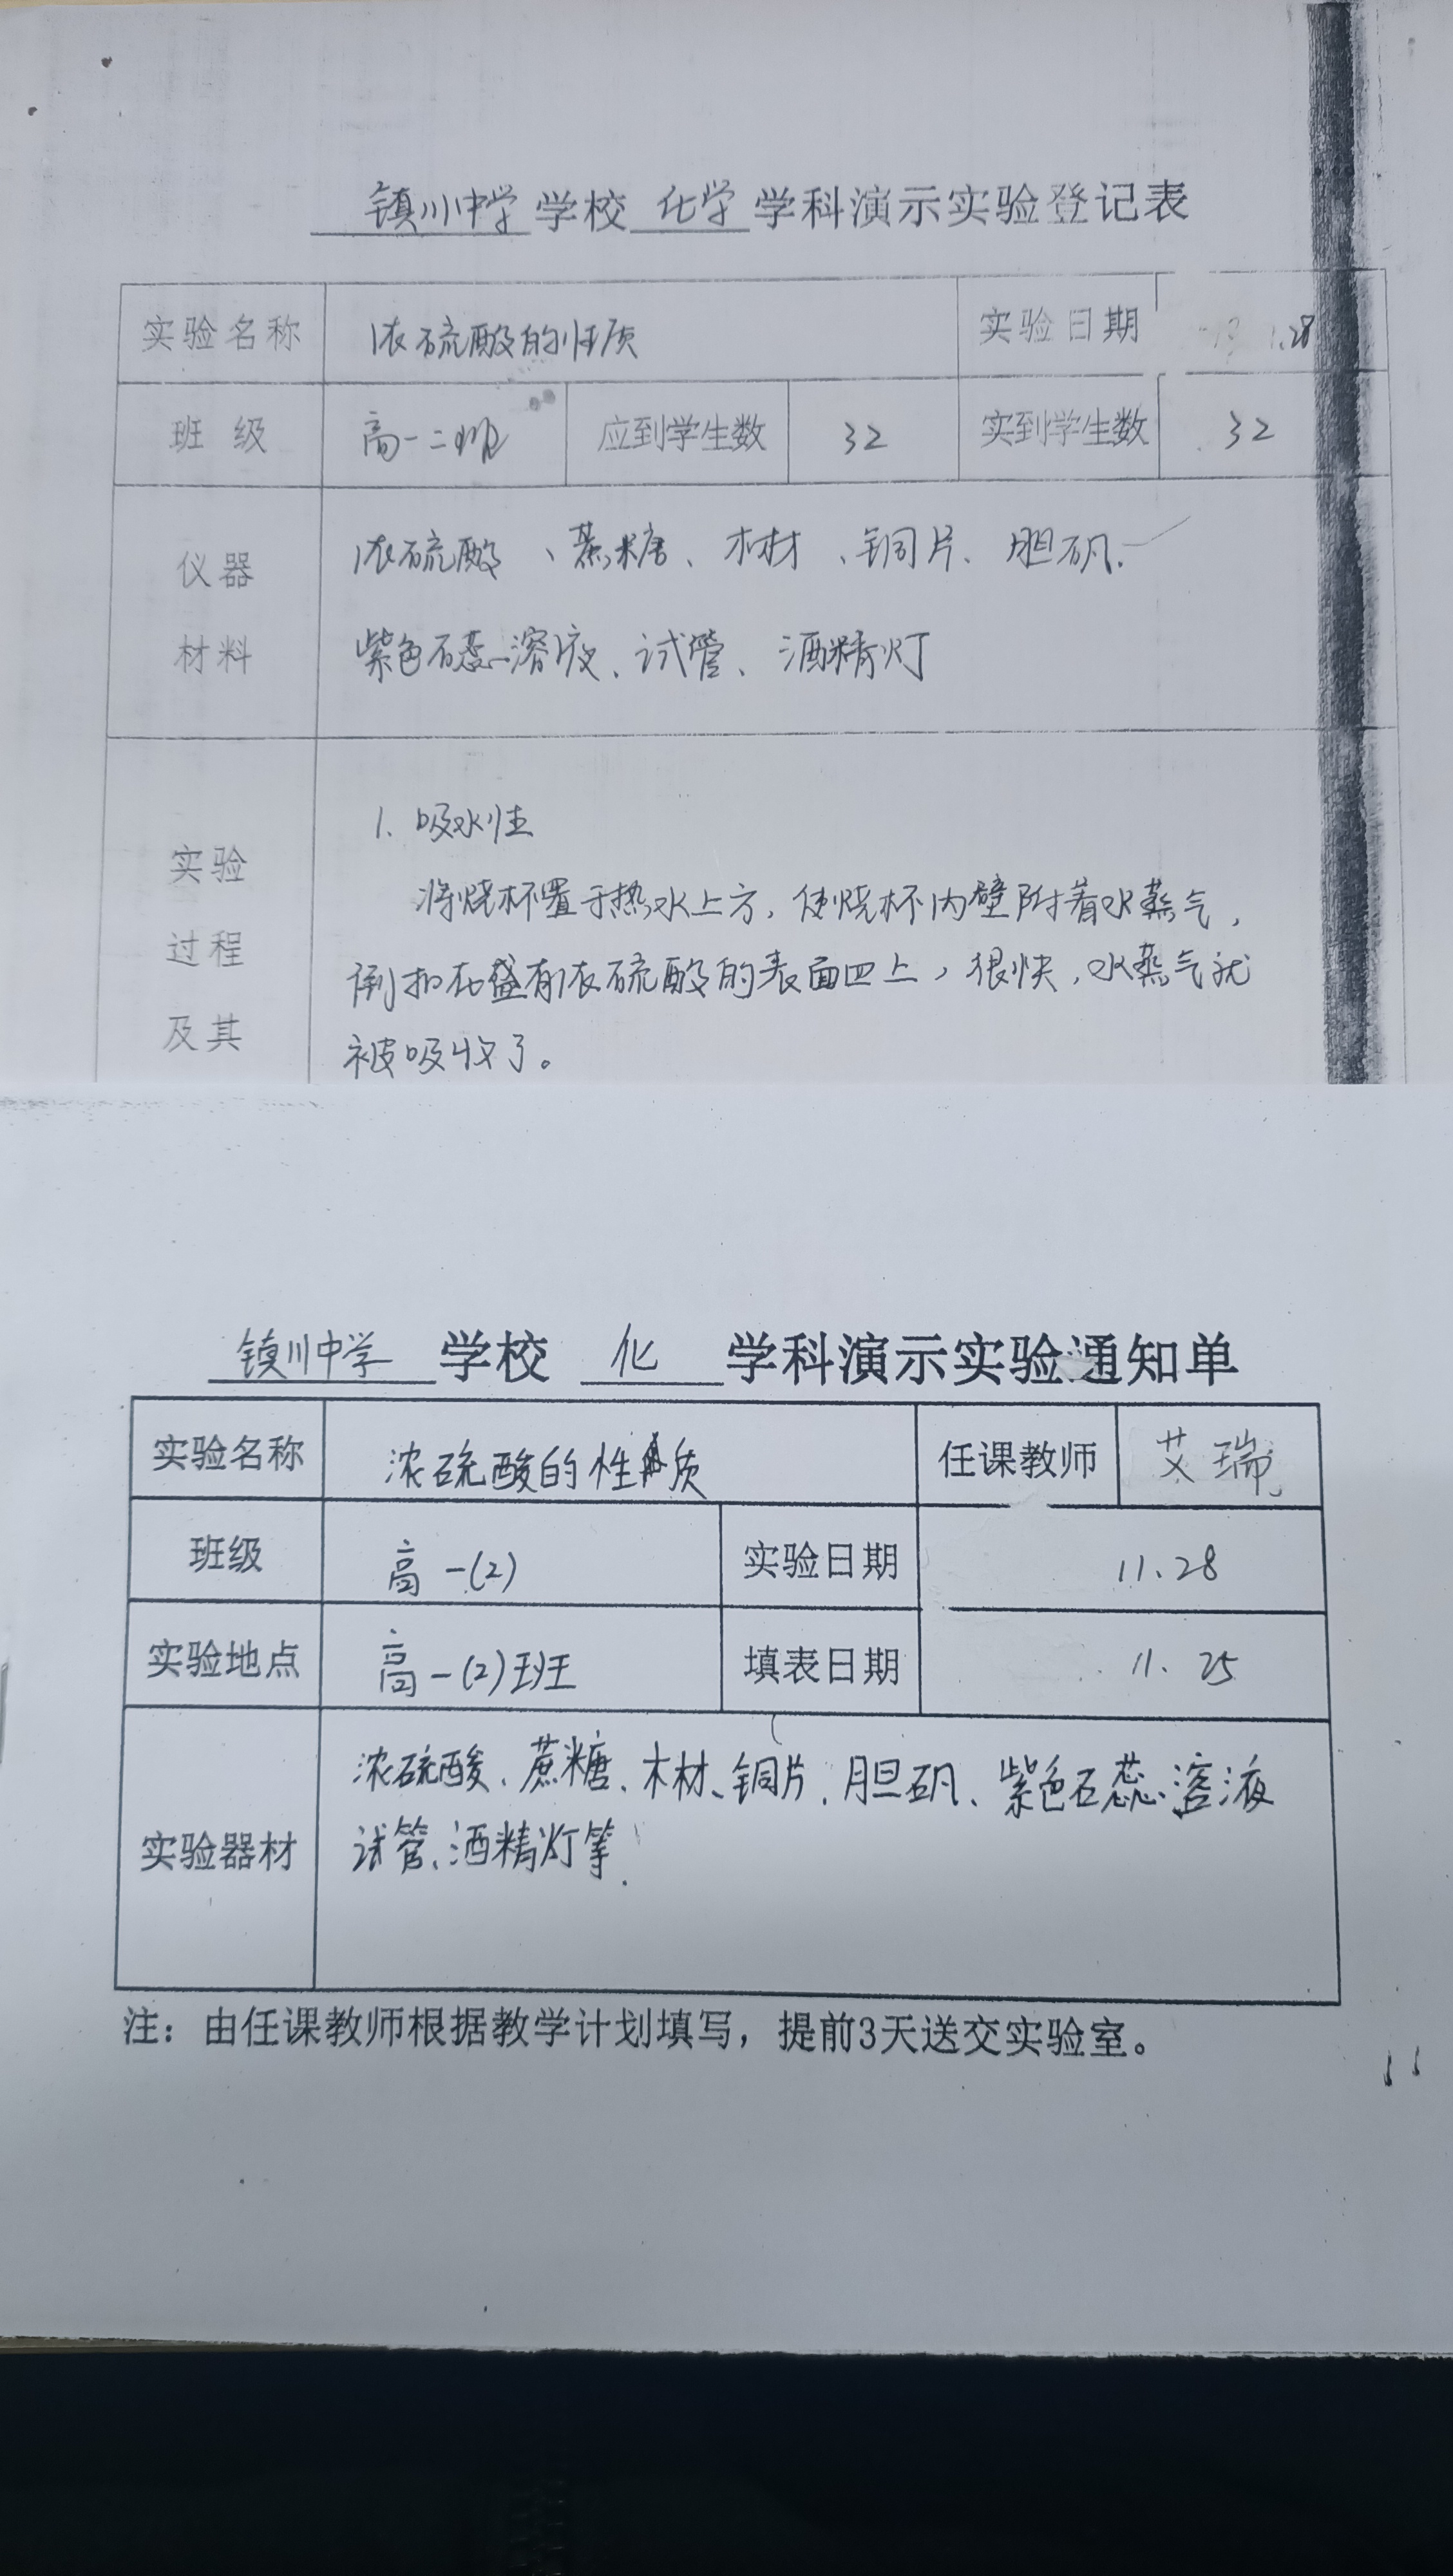 镇川中学 学校 化学 学科演示实验登记表
实验名称 浓硫酸的性质 实验日期 1.28
班 级 高一二班 应到学生数 32 实到学生数 32
仪器 浓硫酸、蔗糖、木材、铜片、胆矾.
材料 紫色石蕊溶液、试管、酒精灯
1. 吸水性
实验 将烧杯置于热水上方, 使烧杯内壁附着水蒸气,
过程 倒扣在盛有浓硫酸的表面皿上, 很快, 水蒸气就
及其 被吸收了。
镇川中学 学校 化 学科演示实验通知单
实验名称 浓硫酸的性质 任课教师 艾瑞
班级 高一(2) 实验日期 11.28
实验地点 高一(2)班 填表日期 11.25
浓硫酸、蔗糖、木材、铜片、胆矾、紫色石蕊溶液
实验器材 试管、酒精灯等.
注：由任课教师根据教学计划填写，提前3天送交实验室。